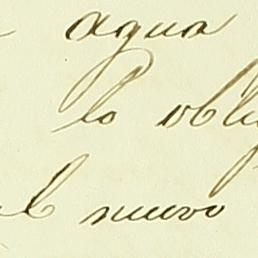 agua
lo obli
el nuevo